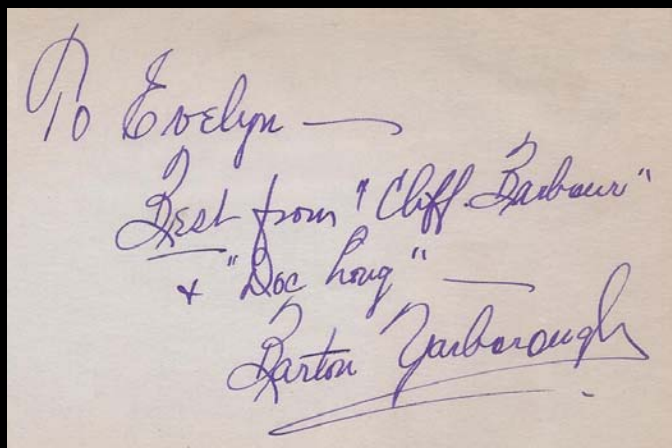 To Evelyn —
Best from "Cliff Barbour"
& "Doc Long" —
Barton Yarborough